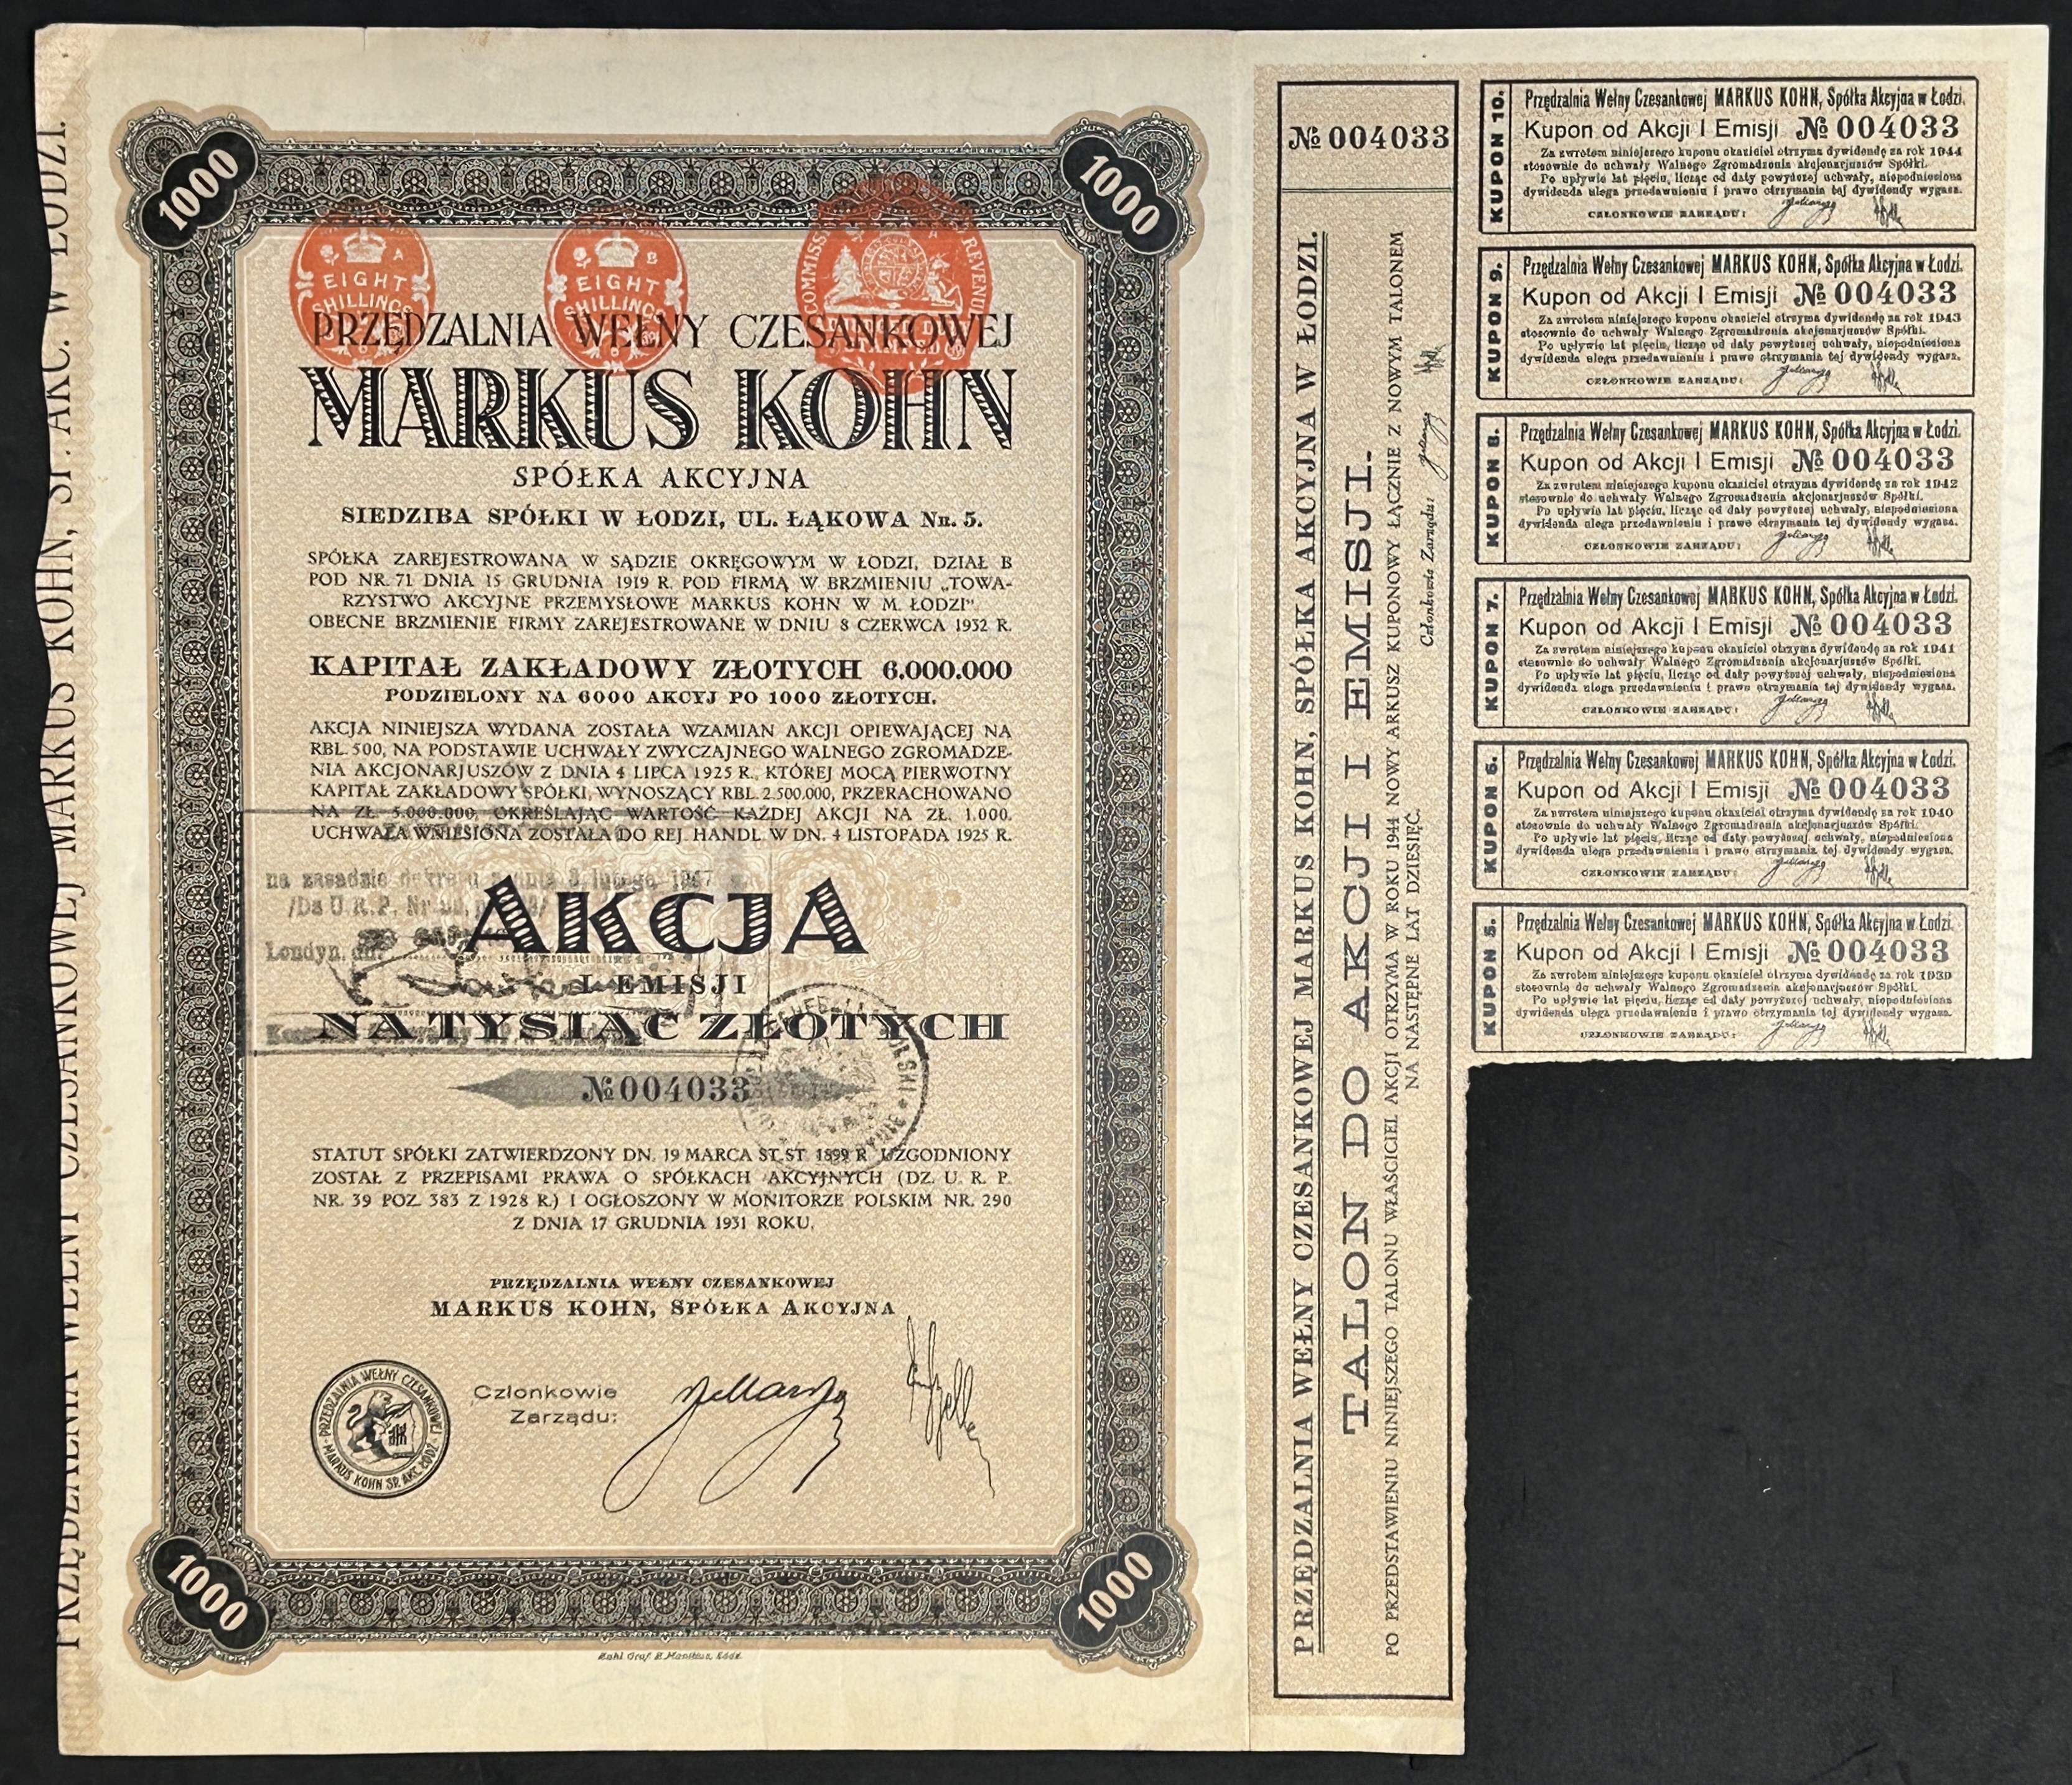 PRZĘDZALNIA WEŁNY CZESANKOWEJ MARKUS KOHN, SP. AKC. W ŁODZI.
1000
1000
A
EIGHT
SHILLINGS
B
EIGHT
SHILLINGS
COMMISS
REVENUE
STAMPED
PRZĘDZALNIA WEŁNY CZESANKOWEJ
MARKUS KOHN
SPÓŁKA AKCYJNA
SIEDZIBA SPÓŁKI W ŁODZI, UL. ŁĄKOWA NR. 5.
SPÓŁKA ZAREJESTROWANA W SĄDZIE OKRĘGOWYM W ŁODZI, DZIAŁ B
POD NR. 71 DNIA 15 GRUDNIA 1919 R. POD FIRMĄ W BRZMIENIU „TOWA-
RZYSTWO AKCYJNE PRZEMYSŁOWE MARKUS KOHN W M. ŁODZI".
OBECNE BRZMIENIE FIRMY ZAREJESTROWANE W DNIU 8 CZERWCA 1932 R.
KAPITAŁ ZAKŁADOWY ZŁOTYCH 6.000.000
PODZIELONY NA 6000 AKCYJ PO 1000 ZŁOTYCH.
AKCJA NINIEJSZA WYDANA ZOSTAŁA WZAMIAN AKCJI OPIEWAJĄCEJ NA
RBL. 500, NA PODSTAWIE UCHWAŁY ZWYCZAJNEGO WALNEGO ZGROMADZE-
NIA AKCJONARJUSZÓW Z DNIA 4 LIPCA 1925 R., KTÓREJ MOCĄ PIERWOTNY
KAPITAŁ ZAKŁADOWY SPÓŁKI, WYNOSZĄCY RBL. 2.500.000, PRZERACHOWANO
NA ZŁ. 5.000.000, OKREŚLAJĄC WARTOŚĆ KAŻDEJ AKCJI NA ZŁ. 1.000.
UCHWAŁA WNIESIONA ZOSTAŁA DO REJ. HANDL. W DN. 4 LISTOPADA 1925 R.
na zasadzie dekretu z dnia 3 lutego 1947
/Dz U R.P. Nr
Londyn, dn.
AKCJA
I EMISJI
NA TYSIĄC ZŁOTYCH
№ 004033
STATUT SPÓŁKI ZATWIERDZONY DN. 19 MARCA ST. ST. 1899 R. UZGODNIONY
ZOSTAŁ Z PRZEPISAMI PRAWA O SPÓŁKACH AKCYJNYCH (DZ. U. R. P.
NR. 39 POZ. 383 Z 1928 R.) I OGŁOSZONY W MONITORZE POLSKIM NR. 290
Z DNIA 17 GRUDNIA 1931 ROKU.
PRZĘDZALNIA WEŁNY CZESANKOWEJ
MARKUS KOHN, SPÓŁKA AKCYJNA
PRZĘDZALNIA WEŁNY CZESANKOWEJ
MARKUS KOHN SP. AKC. ŁÓDŹ
Członkowie
Zarządu:
1000
1000
Zakł. Graf. B. Manitius, Łódź.
№ 004033
PRZĘDZALNIA WEŁNY CZESANKOWEJ MARKUS KOHN, SPÓŁKA AKCYJNA W ŁODZI.
TALON DO AKCJI I EMISJI.
PO PRZEDSTAWIENIU NINIEJSZEGO TALONU WŁAŚCICIEL AKCJI OTRZYMA W ROKU 1944 NOWY ARKUSZ KUPONOWY ŁĄCZNIE Z NOWYM TALONEM
NA NASTĘPNE LAT DZIESIĘĆ.
Członkowie Zarządu:
KUPON 10.
Przędzalnia Wełny Czesankowej MARKUS KOHN, Spółka Akcyjna w Łodzi.
Kupon od Akcji I Emisji № 004033
Za zwrotem niniejszego kuponu okaziciel otrzyma dywidendę za rok 1944
stosownie do uchwały Walnego Zgromadzenia akcjonarjuszów Spółki.
Po upływie lat pięciu, licząc od daty powyższej uchwały, niepodniesiona
dywidenda ulega przedawnieniu i prawo otrzymania tej dywidendy wygasa.
CZŁONKOWIE ZARZĄDU:
KUPON 9.
Przędzalnia Wełny Czesankowej MARKUS KOHN, Spółka Akcyjna w Łodzi.
Kupon od Akcji I Emisji № 004033
Za zwrotem niniejszego kuponu okaziciel otrzyma dywidendę za rok 1943
stosownie do uchwały Walnego Zgromadzenia akcjonarjuszów Spółki.
Po upływie lat pięciu, licząc od daty powyższej uchwały, niepodniesiona
dywidenda ulega przedawnieniu i prawo otrzymania tej dywidendy wygasa.
CZŁONKOWIE ZARZĄDU:
KUPON 8.
Przędzalnia Wełny Czesankowej MARKUS KOHN, Spółka Akcyjna w Łodzi.
Kupon od Akcji I Emisji № 004033
Za zwrotem niniejszego kuponu okaziciel otrzyma dywidendę za rok 1942
stosownie do uchwały Walnego Zgromadzenia akcjonarjuszów Spółki.
Po upływie lat pięciu, licząc od daty powyższej uchwały, niepodniesiona
dywidenda ulega przedawnieniu i prawo otrzymania tej dywidendy wygasa.
CZŁONKOWIE ZARZĄDU:
KUPON 7.
Przędzalnia Wełny Czesankowej MARKUS KOHN, Spółka Akcyjna w Łodzi.
Kupon od Akcji I Emisji № 004033
Za zwrotem niniejszego kuponu okaziciel otrzyma dywidendę za rok 1941
stosownie do uchwały Walnego Zgromadzenia akcjonarjuszów Spółki.
Po upływie lat pięciu, licząc od daty powyższej uchwały, niepodniesiona
dywidenda ulega przedawnieniu i prawo otrzymania tej dywidendy wygasa.
CZŁONKOWIE ZARZĄDU:
KUPON 6.
Przędzalnia Wełny Czesankowej MARKUS KOHN, Spółka Akcyjna w Łodzi.
Kupon od Akcji I Emisji № 004033
Za zwrotem niniejszego kuponu okaziciel otrzyma dywidendę za rok 1940
stosownie do uchwały Walnego Zgromadzenia akcjonarjuszów Spółki.
Po upływie lat pięciu, licząc od daty powyższej uchwały, niepodniesiona
dywidenda ulega przedawnieniu i prawo otrzymania tej dywidendy wygasa.
CZŁONKOWIE ZARZĄDU:
KUPON 5.
Przędzalnia Wełny Czesankowej MARKUS KOHN, Spółka Akcyjna w Łodzi.
Kupon od Akcji I Emisji № 004033
Za zwrotem niniejszego kuponu okaziciel otrzyma dywidendę za rok 1939
stosownie do uchwały Walnego Zgromadzenia akcjonarjuszów Spółki.
Po upływie lat pięciu, licząc od daty powyższej uchwały, niepodniesiona
dywidenda ulega przedawnieniu i prawo otrzymania tej dywidendy wygasa.
CZŁONKOWIE ZARZĄDU: